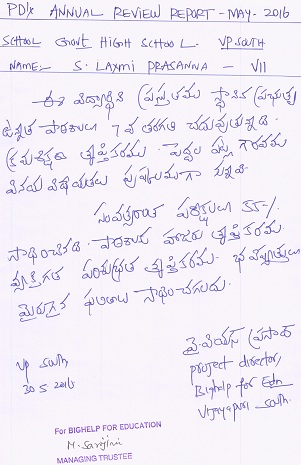 PDi's ANNUAL REVIEW REPORT - MAY - 2016
SCHOOL Govt HIGH SCHOOL. VP.SOUTH
NAME:- S. LAXMI PRASANNA - VII
ఈ విద్యార్థిని ప్రస్తుతము స్థానిక ప్రభుత్వ
ఉన్నత పాఠశాల 7 వ తరగతి చదువుతున్నది.
క్రమశిక్షణ తృప్తికరము. పెద్దల పట్ల గౌరవము
వినయ విధేయతలు పుష్కలముగా వున్నవి.
సంవత్సరాంత పరీక్షలు 55-/.
సాధించినది. పాఠశాల హాజరు తృప్తికరము.
వ్యక్తిగత పరిశుభ్రత తృప్తికరము. భవిష్యత్తులో
మెరుగైన ఫలితాలు సాధించగలదు.
వై.పియస్ ప్రసాద్
project director,
Bighelp for Edn
Vijayapuri south.
VP South
30.5.2016
For BIGHELP FOR EDUCATION
M. Sarojini
MANAGING TRUSTEE